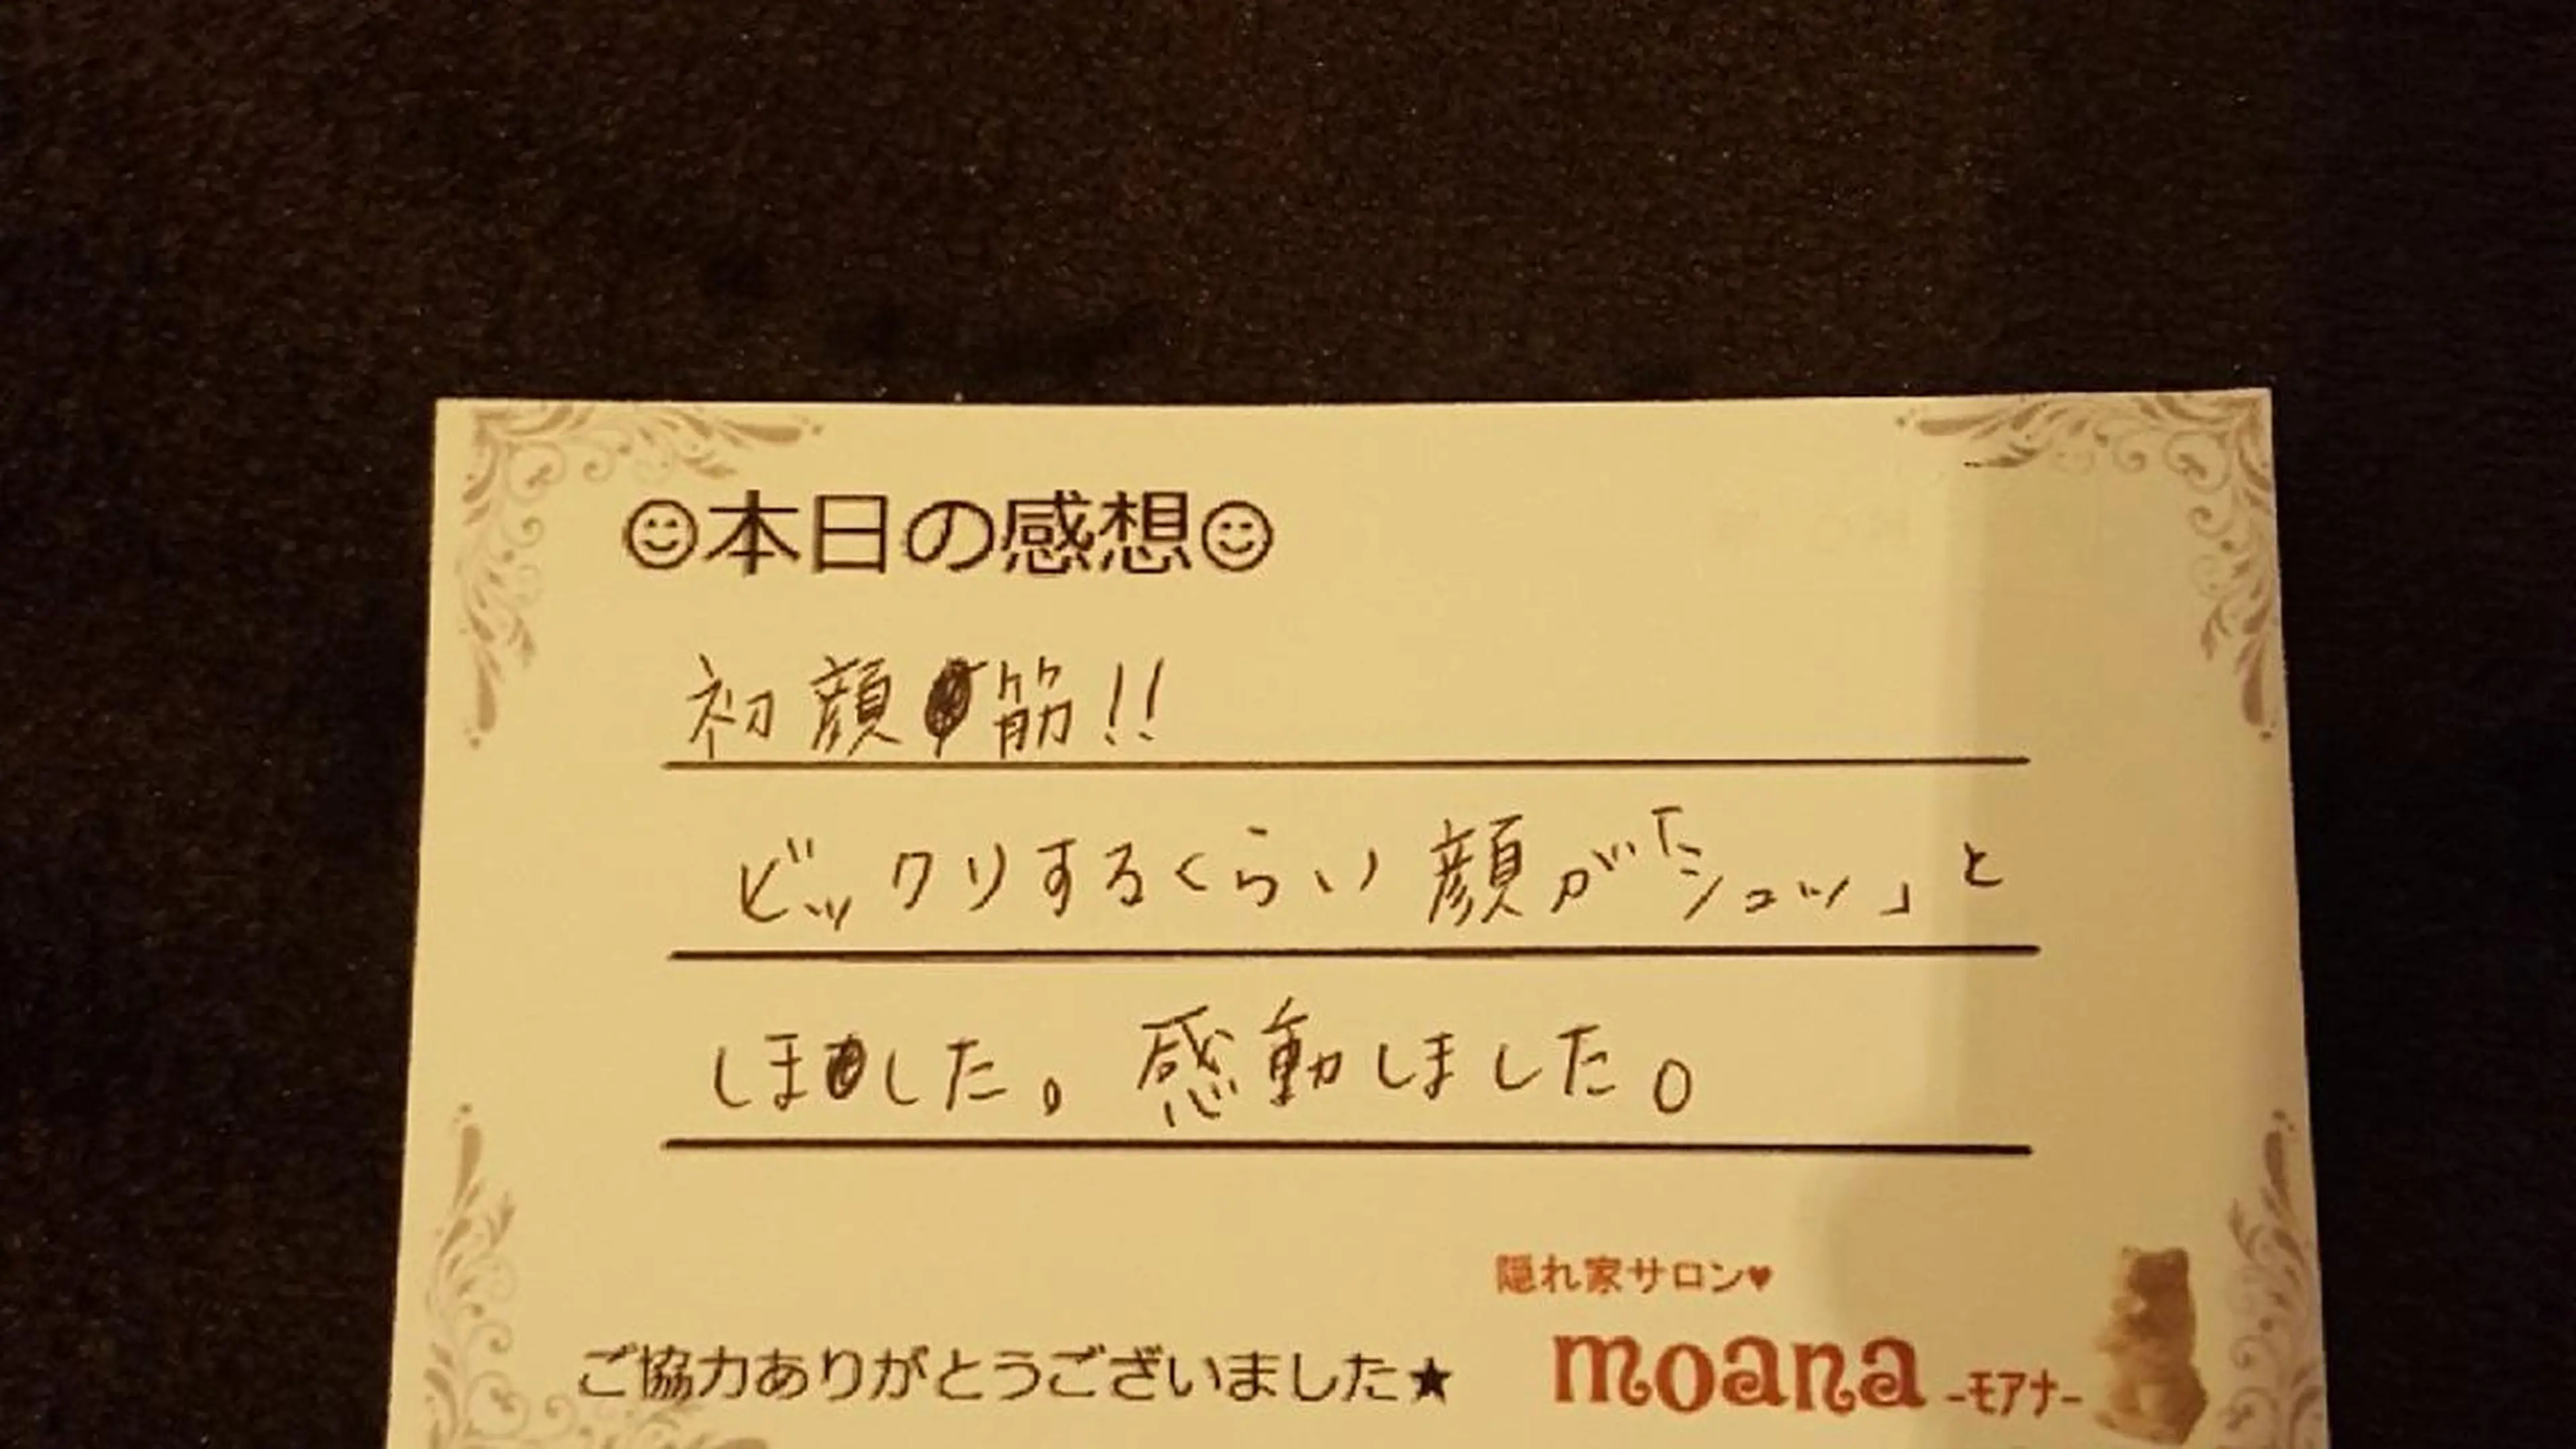 ☺本日の感想☺
初顔筋!!
ビックリするくらい顔が「シュッ」と
しました。感動しました。
隠れ家サロン♥
moana -モアナ-
ご協力ありがとうございました★